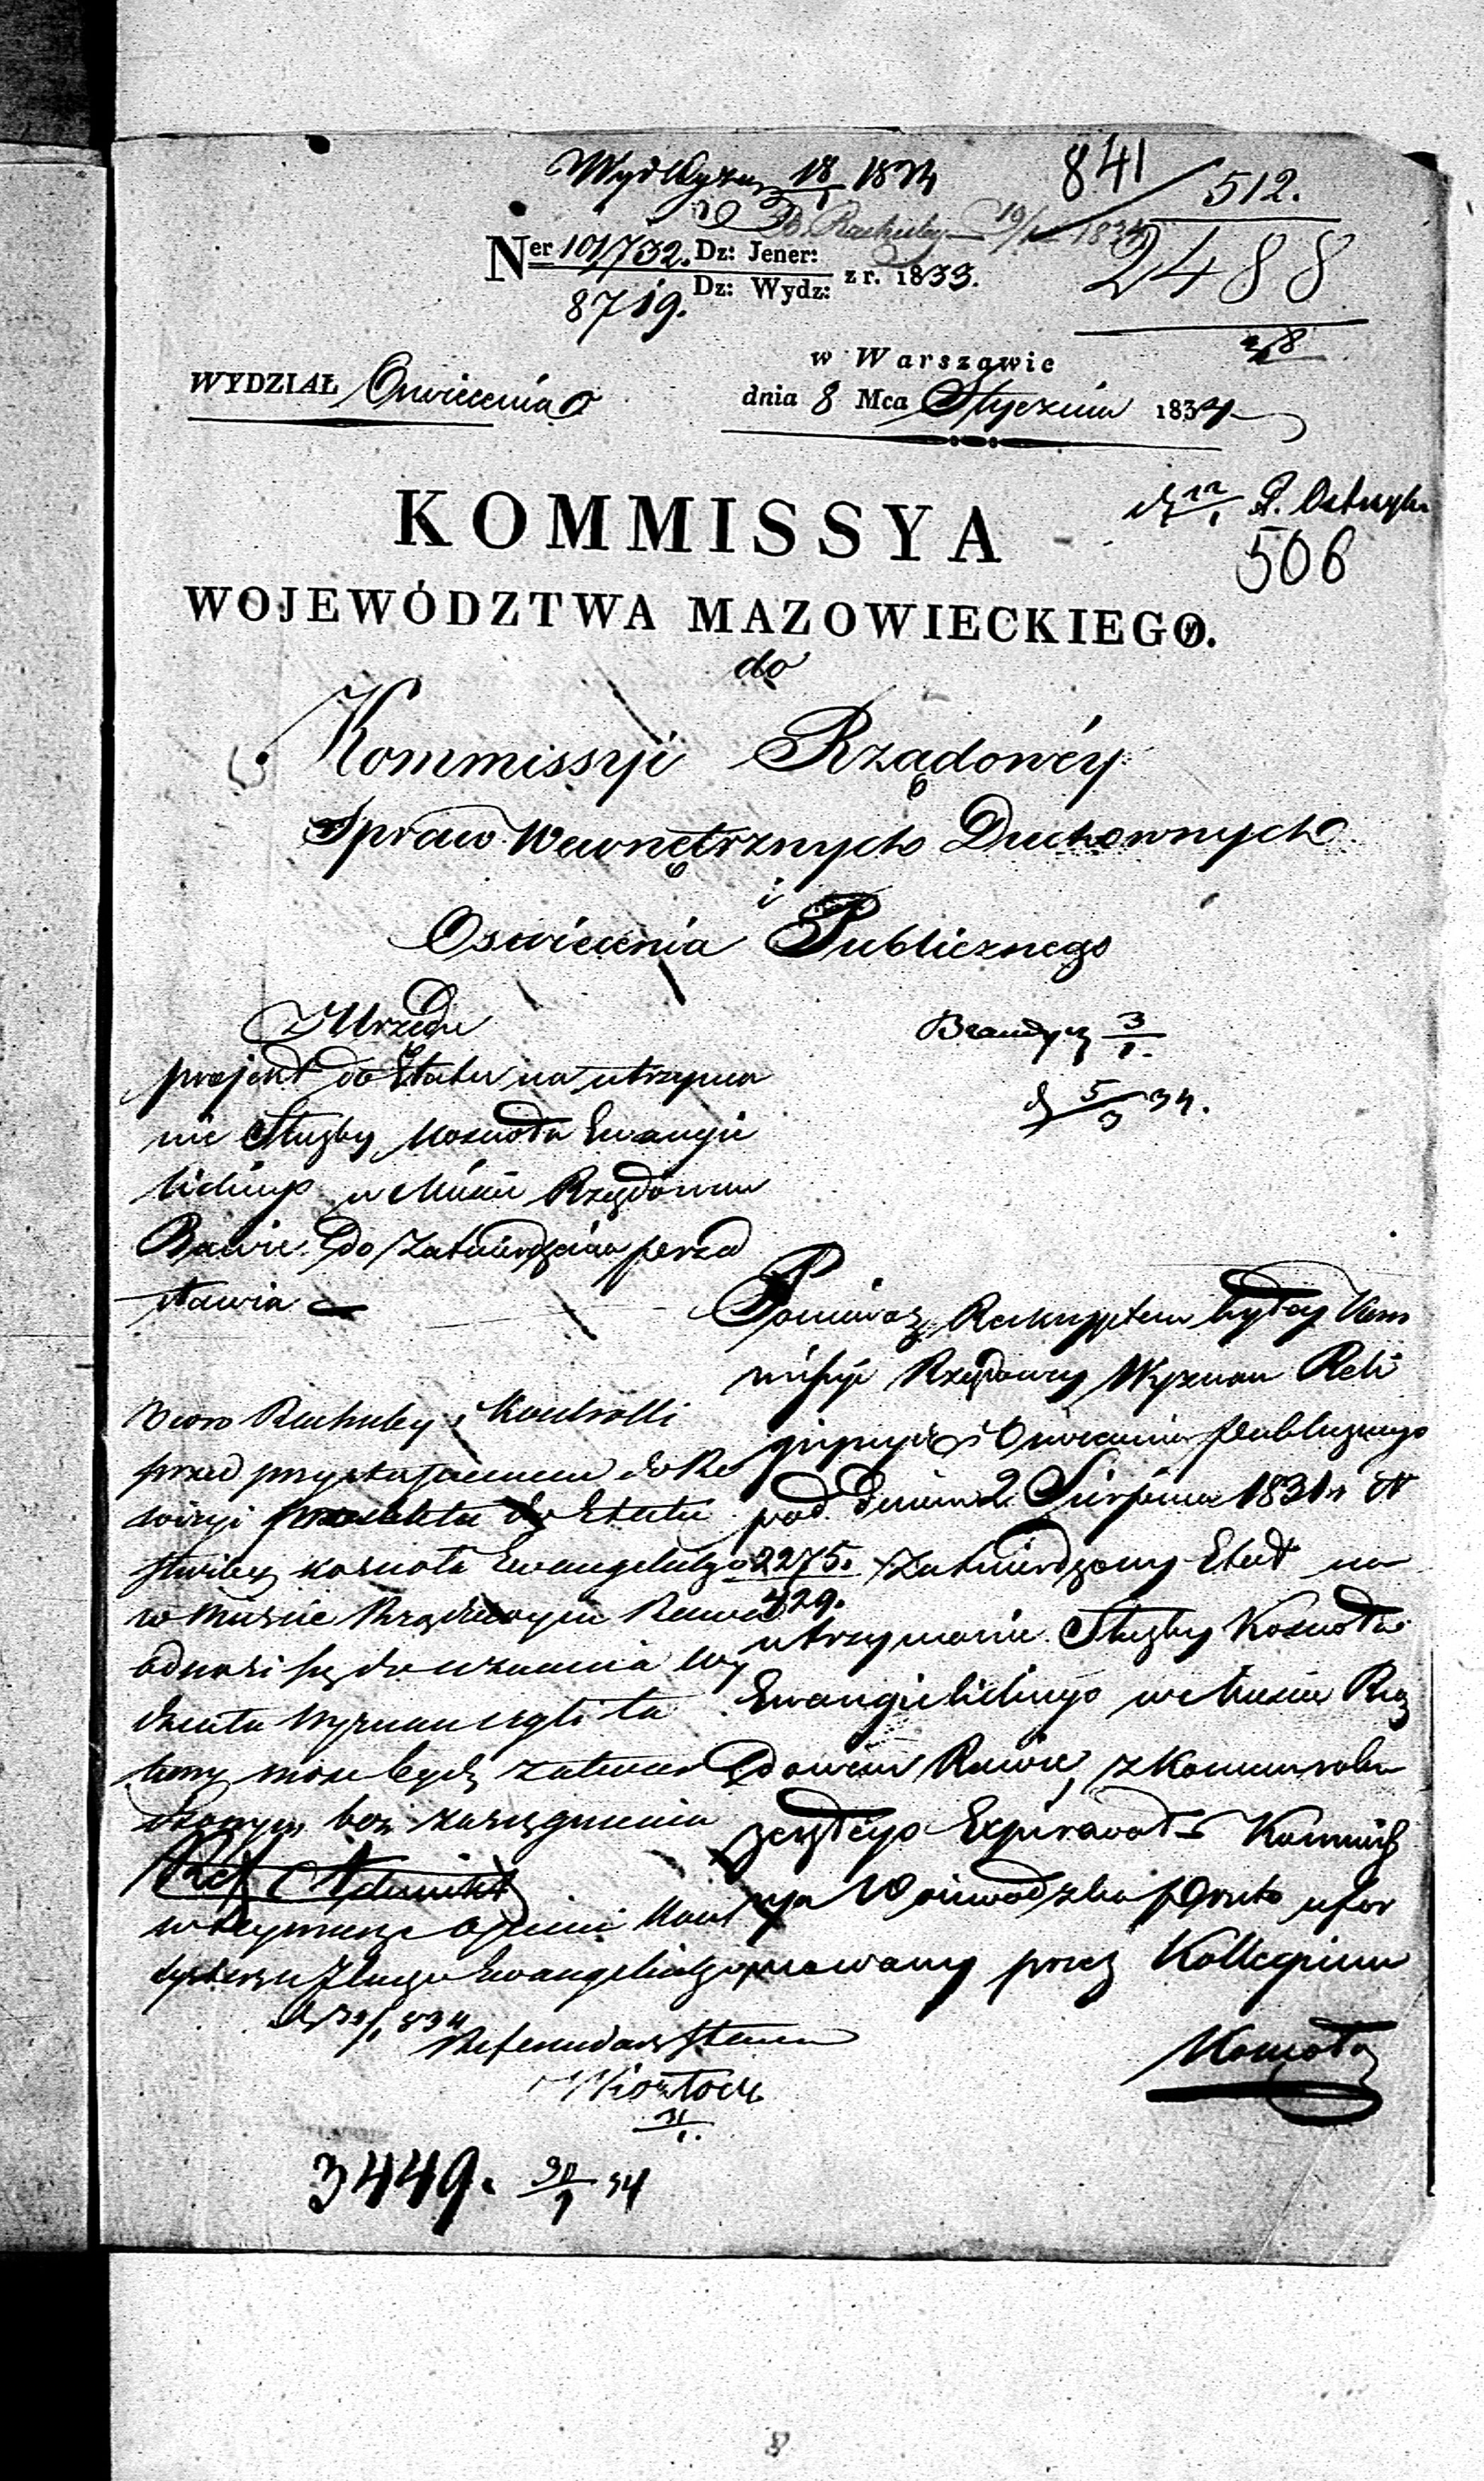 Wydz Wyznań 18/1 1834
841
512.
B. Rachuby 19/1 1834
2488
Ner 101,732. Dz: Jener: z r. 1833.
8719. Dz: Wydz:
WYDZIAŁ Oswiecenia
w Warszawie
dnia 8 Mca Stycznia 1834
506
KOMMISSYA
WOJEWÓDZTWA MAZOWIECKIEGO.
do
Kommissyi Rządowéy
Spraw Wewnętrznych Duchownych
i
Oswiecenia Publicznego
Z Urzędu
projekt do Etatu na utrzyma
nie Służby Kościoła Ewangie
lickiego w Mieście Rządowem
Rawie do zatwierdzenia przed
stawia
3/1.
5/3 34.
Ponieważ Reskryptem byłey Kom
missyi Rządowey Wyznań Reli
giynych i Oswiecenia Publicznego
pod dniem 2 Sierpnia 1831 r N
2275.
429.
zatwierdzony Etat na
utrzymanie Służby Kościoła
Ewangielickiego w Mieście Rzą
dowem Rawie, z końcem roku
zeszłego Expirował Kommis
sya Woiewodzka przeto ufor
mowany przez Kollegium
Kościoła
Biuro Rachuby i Kontrolli
przed przystąpieniem do Re
wizyi Etatu
służby kościoła Ewangelickiego
w Mieście Rządowym Rawa
odnosi się do uznania Wy
działu Wyznań czyli ta
kowy może bydź zatwier
dzonym bez zasięgnienia
w tey mierze opinii Kon
systorza Jlnego Ewangelickiego
30/1 834
Referendarz Stanu
31/1.
3449. 30/1 34